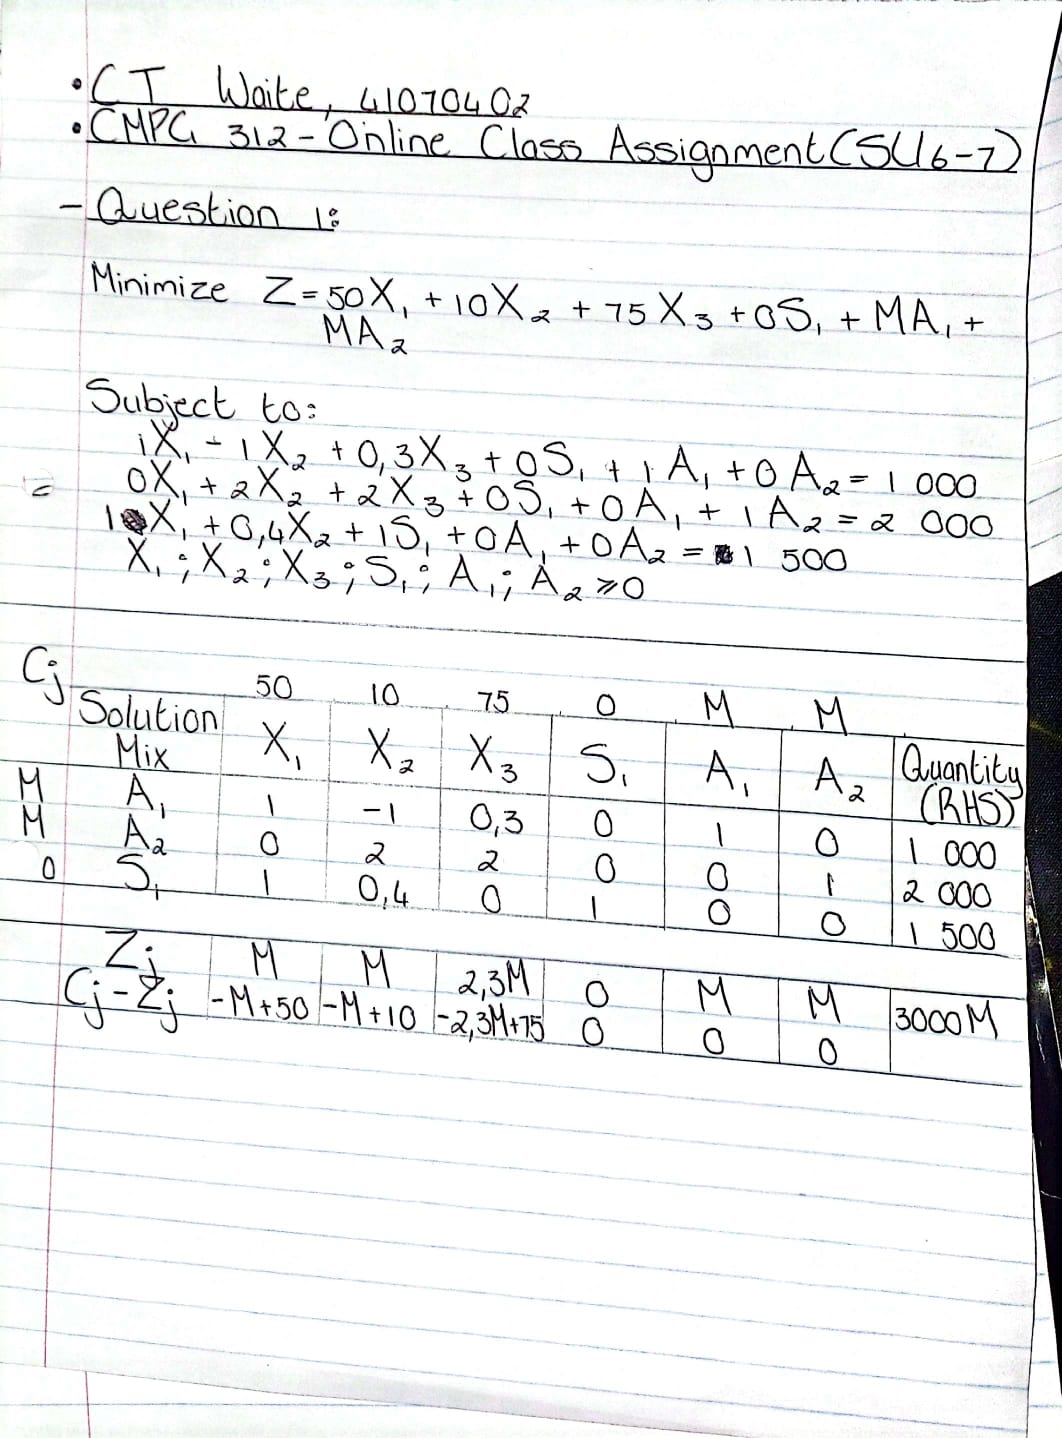 • CT Waite, 41070402
• CMPG 312 - Online Class Assignment (SU6-7)
- Question 1:
Minimize Z = 50X₁ + 10X₂ + 75X₃ + 0S₁ + MA₁ +
MA₂
Subject to:
1X₁ - 1X₂ + 0,3X₃ + 0S₁ + 1A₁ + 0A₂ = 1 000
0X₁ + 2X₂ + 2X₃ + 0S₁ + 0A₁ + 1A₂ = 2 000
1X₁ + 0,4X₂ + 1S₁ + 0A₁ + 0A₂ = 1 500
X₁; X₂; X₃; S₁; A₁; A₂ ⩾ 0
Cj 50 10 75 0 M M
Solution Mix X₁ X₂ X₃ S₁ A₁ A₂ Quantity (RHS)
M A₁ 1 -1 0,3 0 1 0 1 000
M A₂ 0 2 2 0 0 1 2 000
0 S₁ 1 0,4 0 1 0 0 1 500
Zj M M 2,3M 0 M M 3000M
Cj-Zj -M+50 -M+10 -2,3M+75 0 0 0